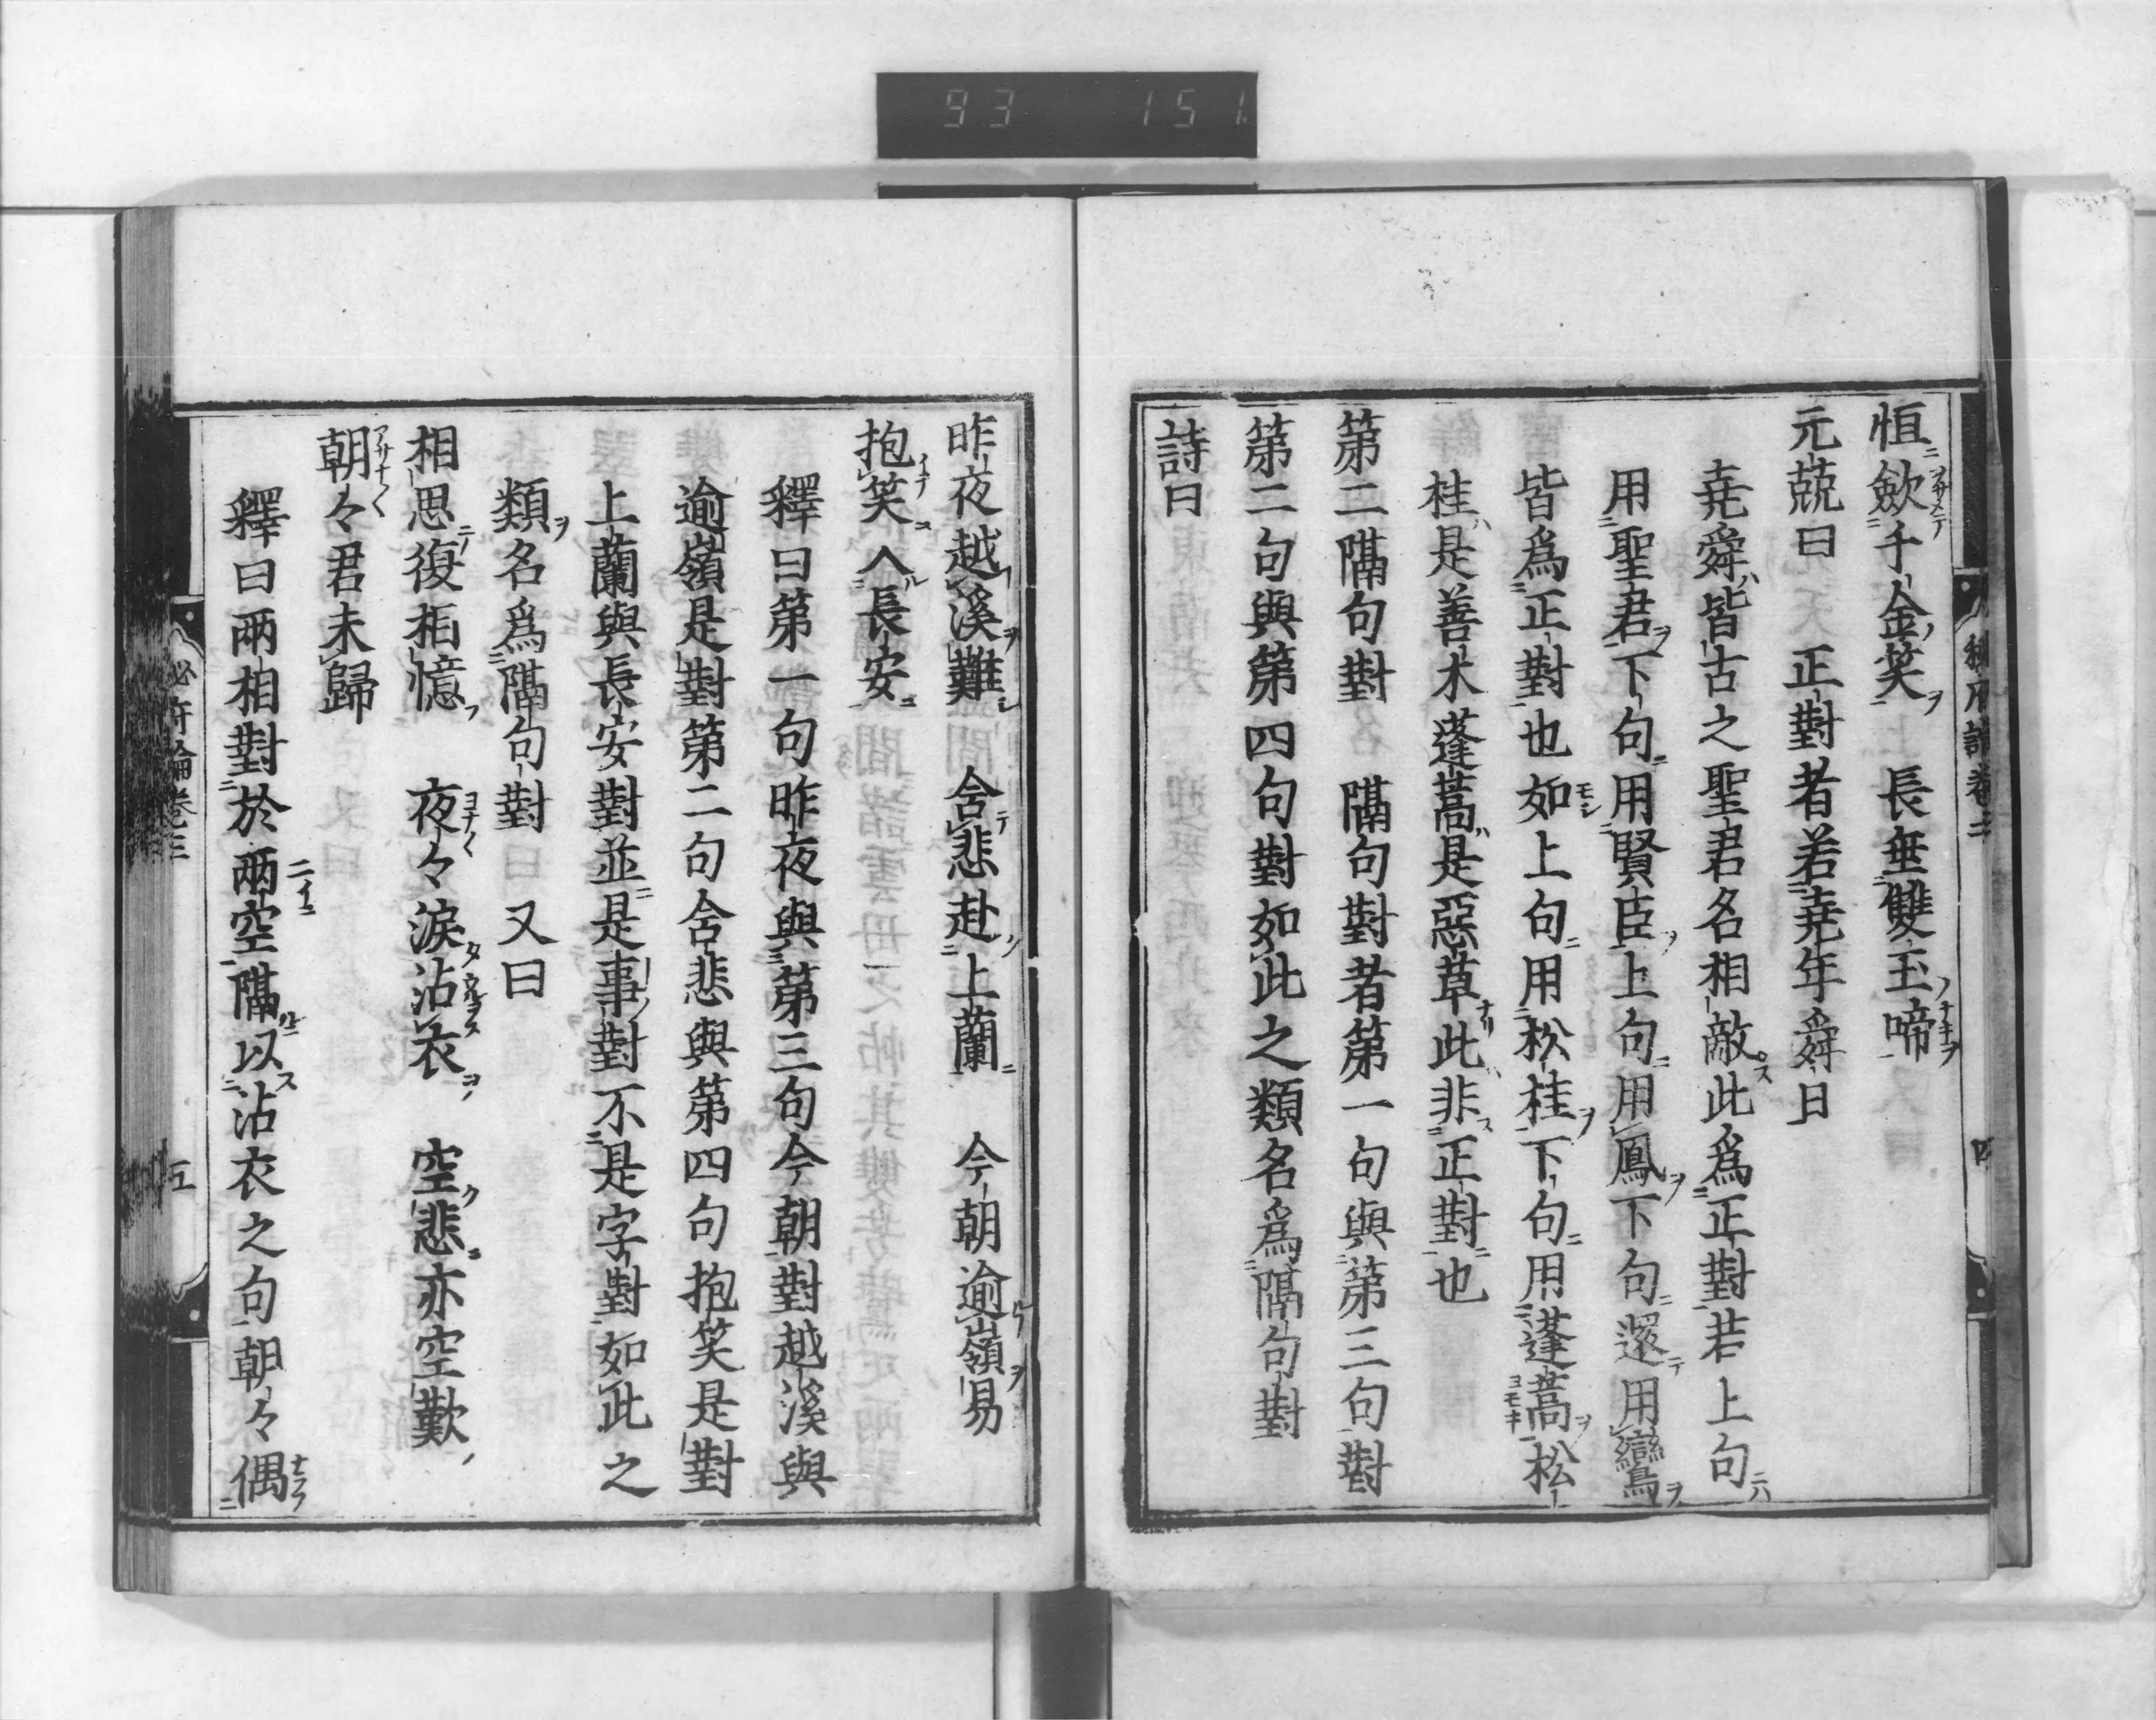 93 151
恒歛千金笑　長垂雙玉啼
元兢曰　正對者若堯年舜日
堯舜皆古之聖君名相敵此爲正對若上句
用聖君下句用賢臣上句用鳳下句還用鸞
皆爲正對也如上句用松桂下句用蓬蒿松
桂是善木蓬蒿是惡草此非正對也
第二隔句對　隔句對者第一句與第三句對
第二句與第四句對如此之類名爲隔句對
詩曰
昨夜越溪難　含悲赴上蘭　今朝逾嶺易
抱笑入長安
釋曰第一句昨夜與第三句今朝對越溪與
逾嶺是對第二句含悲與第四句抱笑是對
上蘭與長安對並是事對不是字對如此之
類名爲隔句對　又曰
相思復相憶　夜々淚沾衣　空悲亦空歎
朝々君未歸
釋曰兩相對於兩空隔以沾衣之句朝々偶
必府論卷三
五